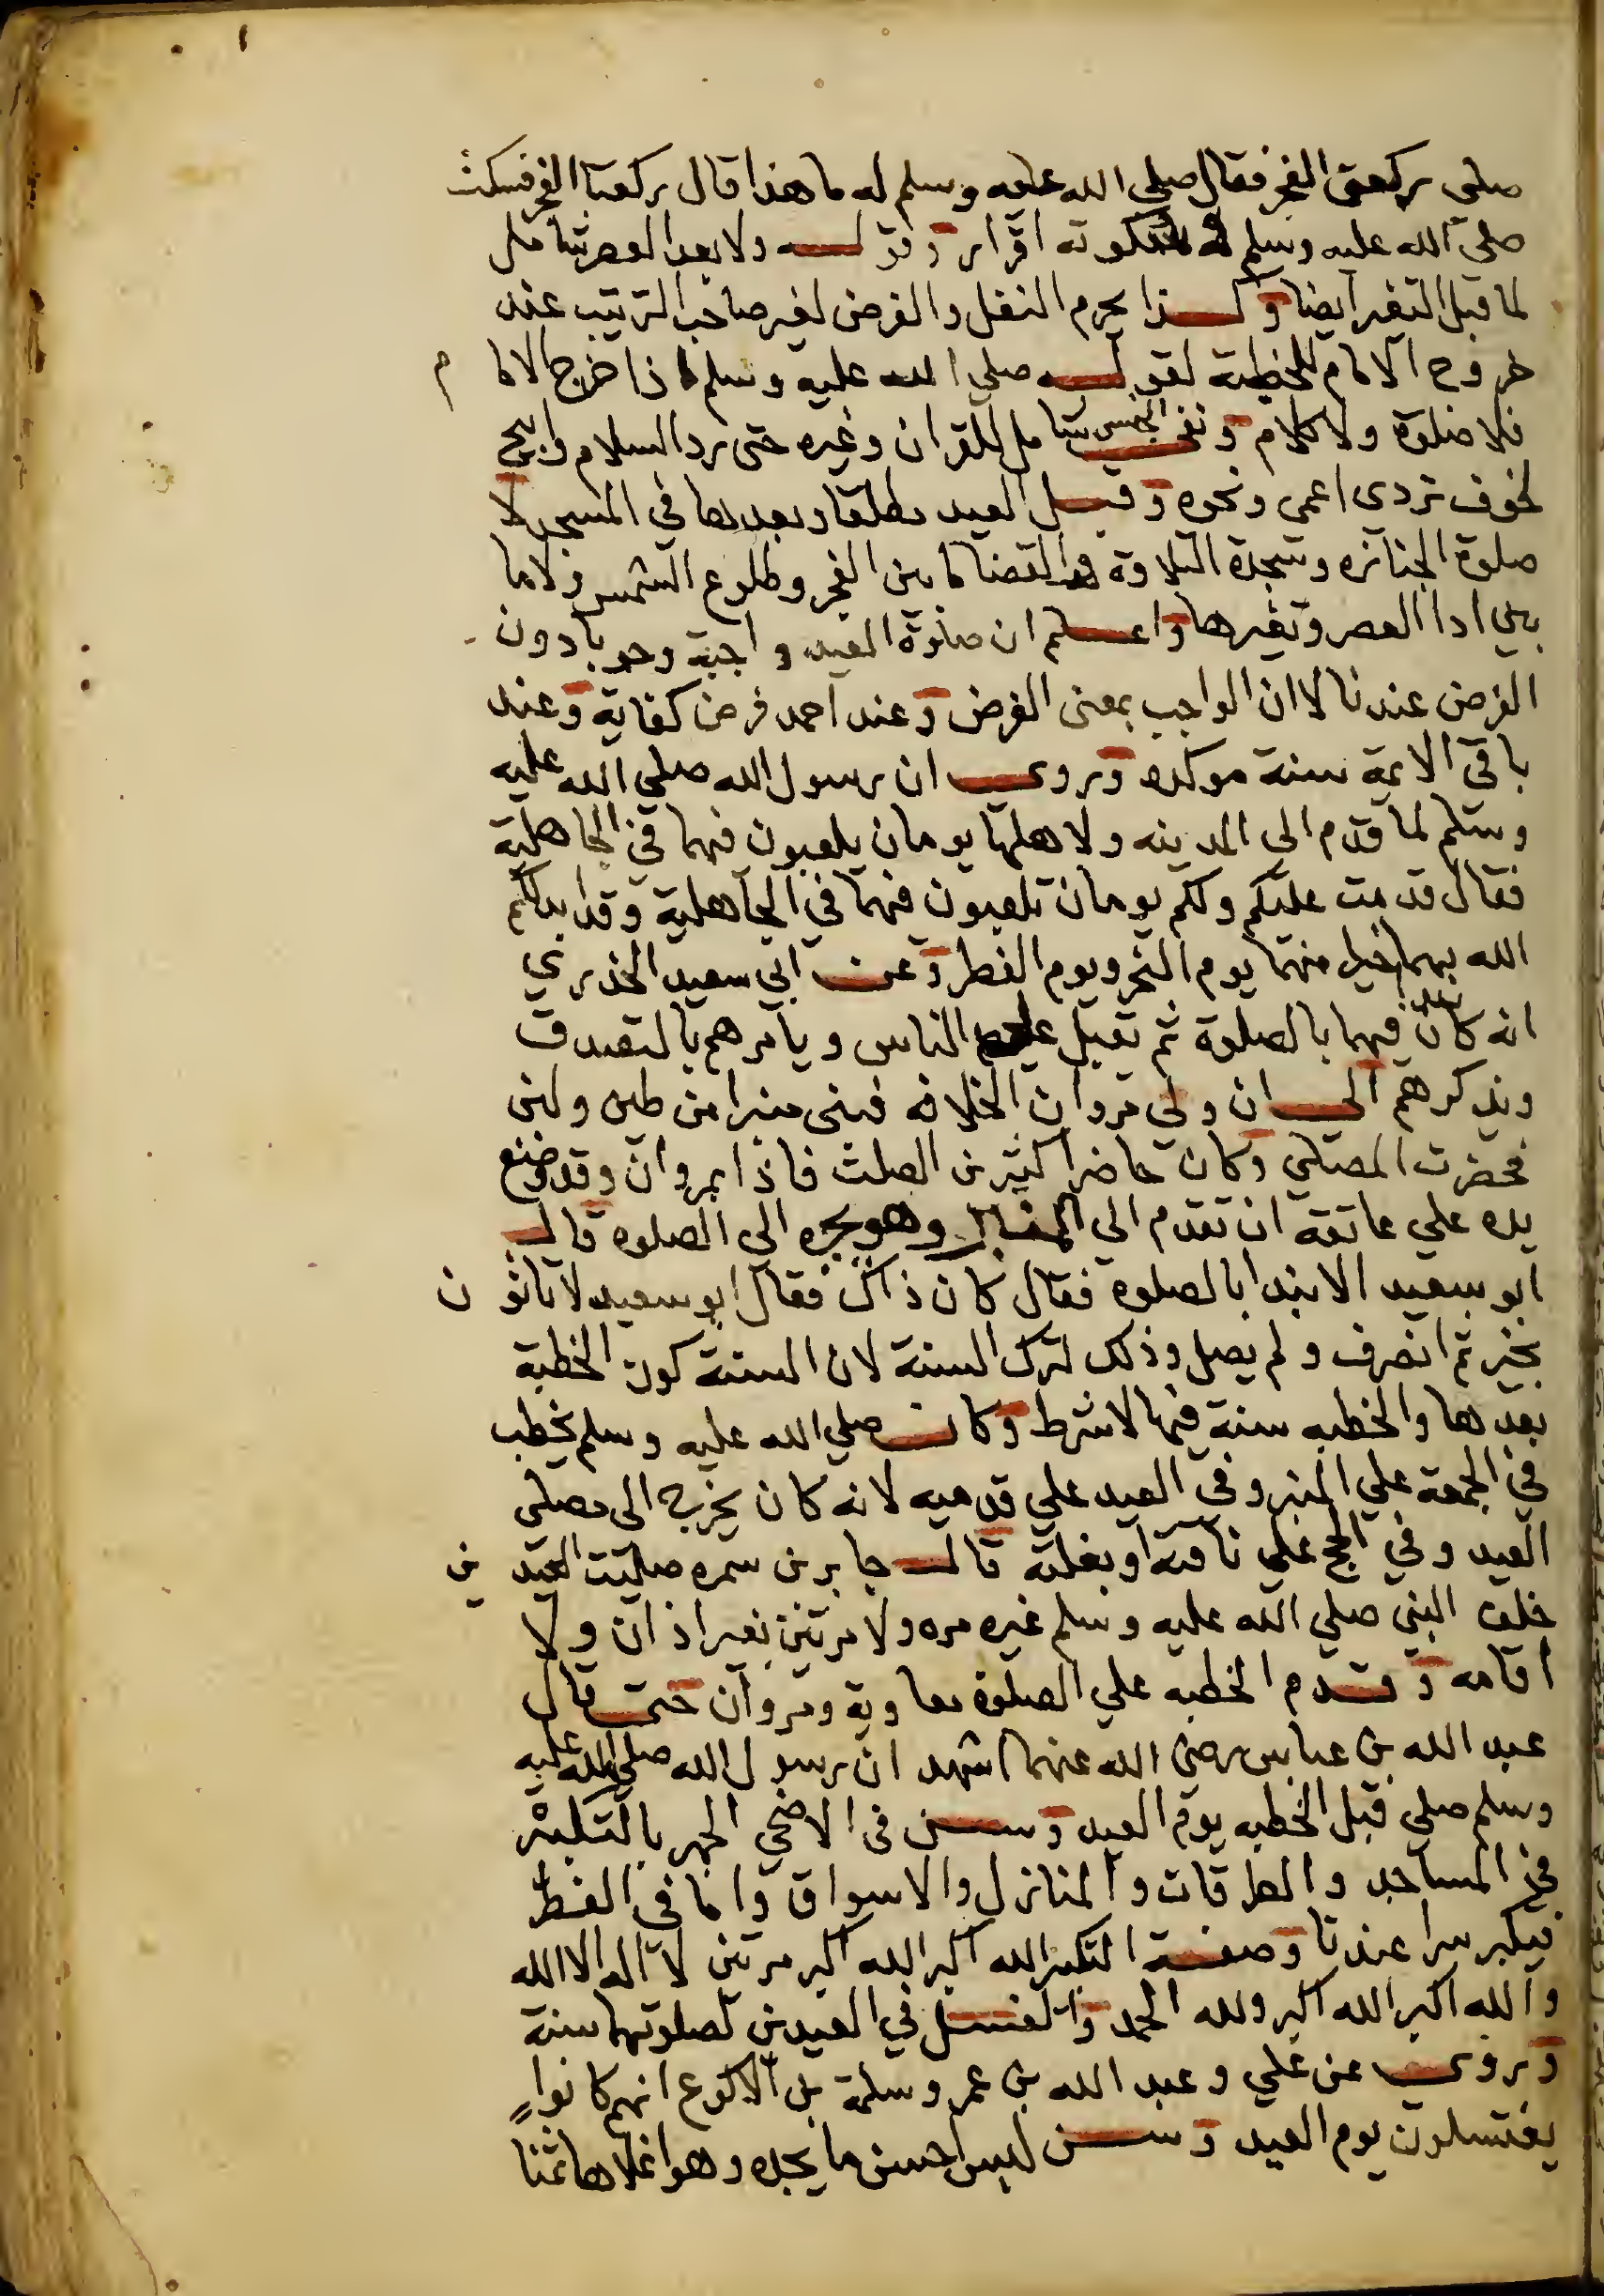 صلى ركعتى الفجر فقال صلي الله عليه وسلم له ما هذا قال ركعتا الفجر فسكت
صلي الله عليه وسلم له فسكوته اقرار وقوله ولا بعد العصر شامل
لما قبل التغير ايضا وكذا يحرم النفل والفرض لغير صاحب الترتيب عند
خروج الامام للخطبة لقوله صلي الله عليه وسلم اذا خرج الامام
فلا صلوة ولا كلام ونفى الجنس شامل للقران وغيره حتى رد السلام وابيح
لخوف تردى اعمى ونحوه وقبل العيد مطلقا وبعدها في المسجد لا
صلوة الجنازه وسجدة التلاوة والقضا ما بين الفجر وطلوع الشمس ولا ما
بين ادا العصر وتغيرها واعلم ان صلوة العيد واجبة وجوبا دون
الفرض عندنا لا ان الواجب بمعنى الفرض وعند احمد فرض كفاية وعند
باقي الايمة سنة موكده وروي ان رسول الله صلي الله عليه
وسلم لما قدم الى المدينه ولاهلها يومان يلعبون فيهما في الجاهلية
فقال قدمت عليكم ولكم يومان تلعبون فيهما في الجاهلية وقد ابدلكم
الله بهما خيرا منهما يوم النحر ويوم الفطر وعن ابي سعيد الخدري
انه كان يبدا فيهما بالصلوة ثم يقبل علي الناس ويامرهم بالتصدق
ويذكرهم الى ان ولي مروان الخلافه فبنى منبرا من طين ولبن
فحضرت المصلي وكان حاضرا كثير بن الصلت فاذا بمروان وقد وضع
يده علي عاتقة ان تقدم الي المنبر وهو يجره الي الصلوه قال
ابو سعيد الا نبدا بالصلوه فقال كان ذاك فقال ابو سعيد لا تاتون
بخير ثم انصرف ولم يصل وذلك لترك السنة لان السنة كون الخطبة
بعدها والخطبه سنة فيها لا شرط وكان صلي الله عليه وسلم يخطب
في الجمعة علي المنبر وفي العيد علي قدميه لانه كان يخرج الى مصلى
العيد وفي الحج علي ناقته او بغلته قال جابر بن سمره صليت العيدين
خلف النبي صلي الله عليه وسلم غيره مره ولا مرتين بغير اذان ولا
اقامه وقدم الخطبه علي الصلوة معاوية ومروان حتى قال
عبد الله بن عباس رضي الله عنهما اشهد ان رسول الله صلي الله عليه
وسلم صلي قبل الخطبه يوم العيد وسن في الاضحي الجهر بالتكبير
في المساجد والطرقات والمنازل والاسواق واما في الفطر
فيكبر سرا عندنا وصفة التكبير الله اكبر الله اكبر مرتين لا اله الا الله
والله اكبر الله اكبر ولله الحمد والغسل في العيدين لصلوتهما سنة
وروي عن علي وعبد الله بن عمر وسلمة بن الاكوع انهم كانوا
يغتسلون يوم العيد وسن لبس احسن ما يجده وهو اغلاها ثمنا